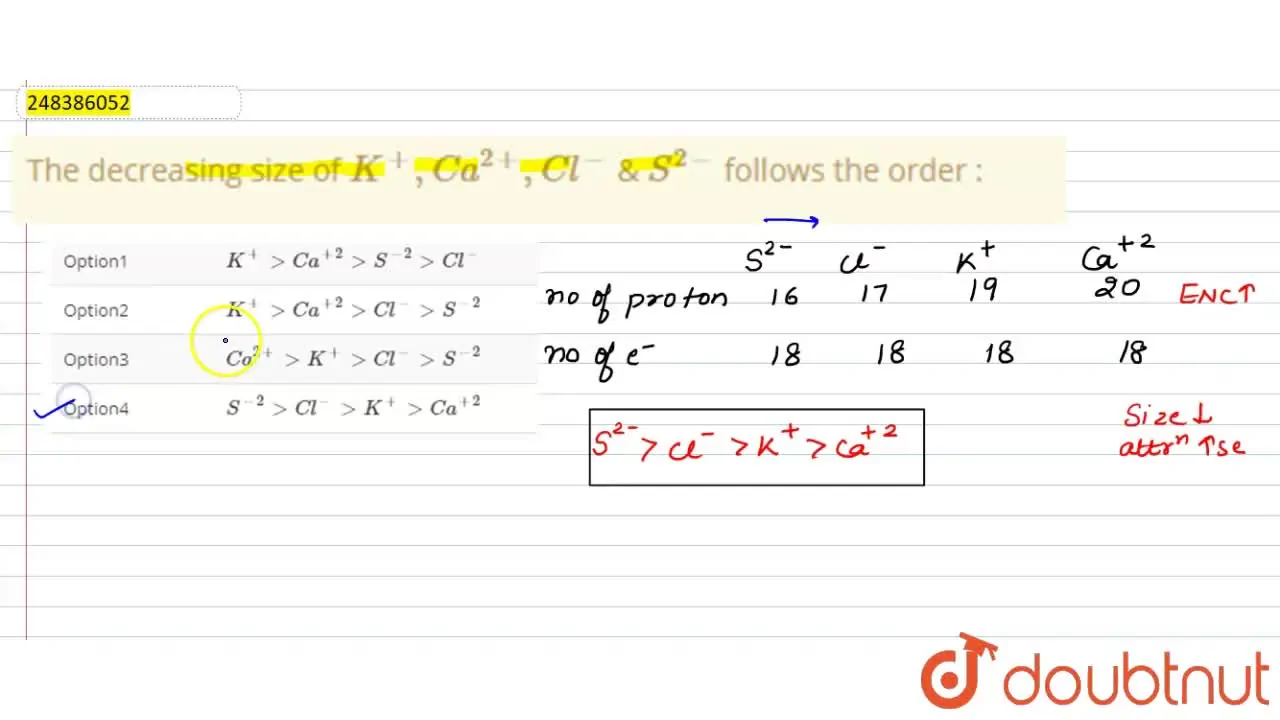 248386052
The decreasing size of K⁺, Ca²⁺, Cl⁻ & S²⁻ follows the order :
Option1 K⁺ > Ca⁺² > S⁻² > Cl⁻
Option2 K⁺ > Ca⁺² > Cl⁻ > S⁻²
Option3 Ca²⁺ > K⁺ > Cl⁻ > S⁻²
Option4 S⁻² > Cl⁻ > K⁺ > Ca⁺²
S²⁻ Cl⁻ K⁺ Ca⁺²
no of proton 16 17 19 20 ENC↑
no of e⁻ 18 18 18 18
Size↓
attrⁿ ↑se
S²⁻ > Cl⁻ > K⁺ > Ca⁺²
doubtnut